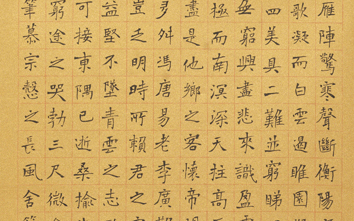 雁陣驚寒聲斷衡陽
歌凝而白雲遏睢園
四美具二難並窮睇
無窮興盡悲來識盈
極而南溟深天柱高
盡是他鄉之客懷帝
多舛馮唐易老李廣
豈乏明時所賴君子
益堅不墜青雲之志
可接東隅已逝桑榆
窮途之哭勃三尺微
筆慕宗慤之長風舍